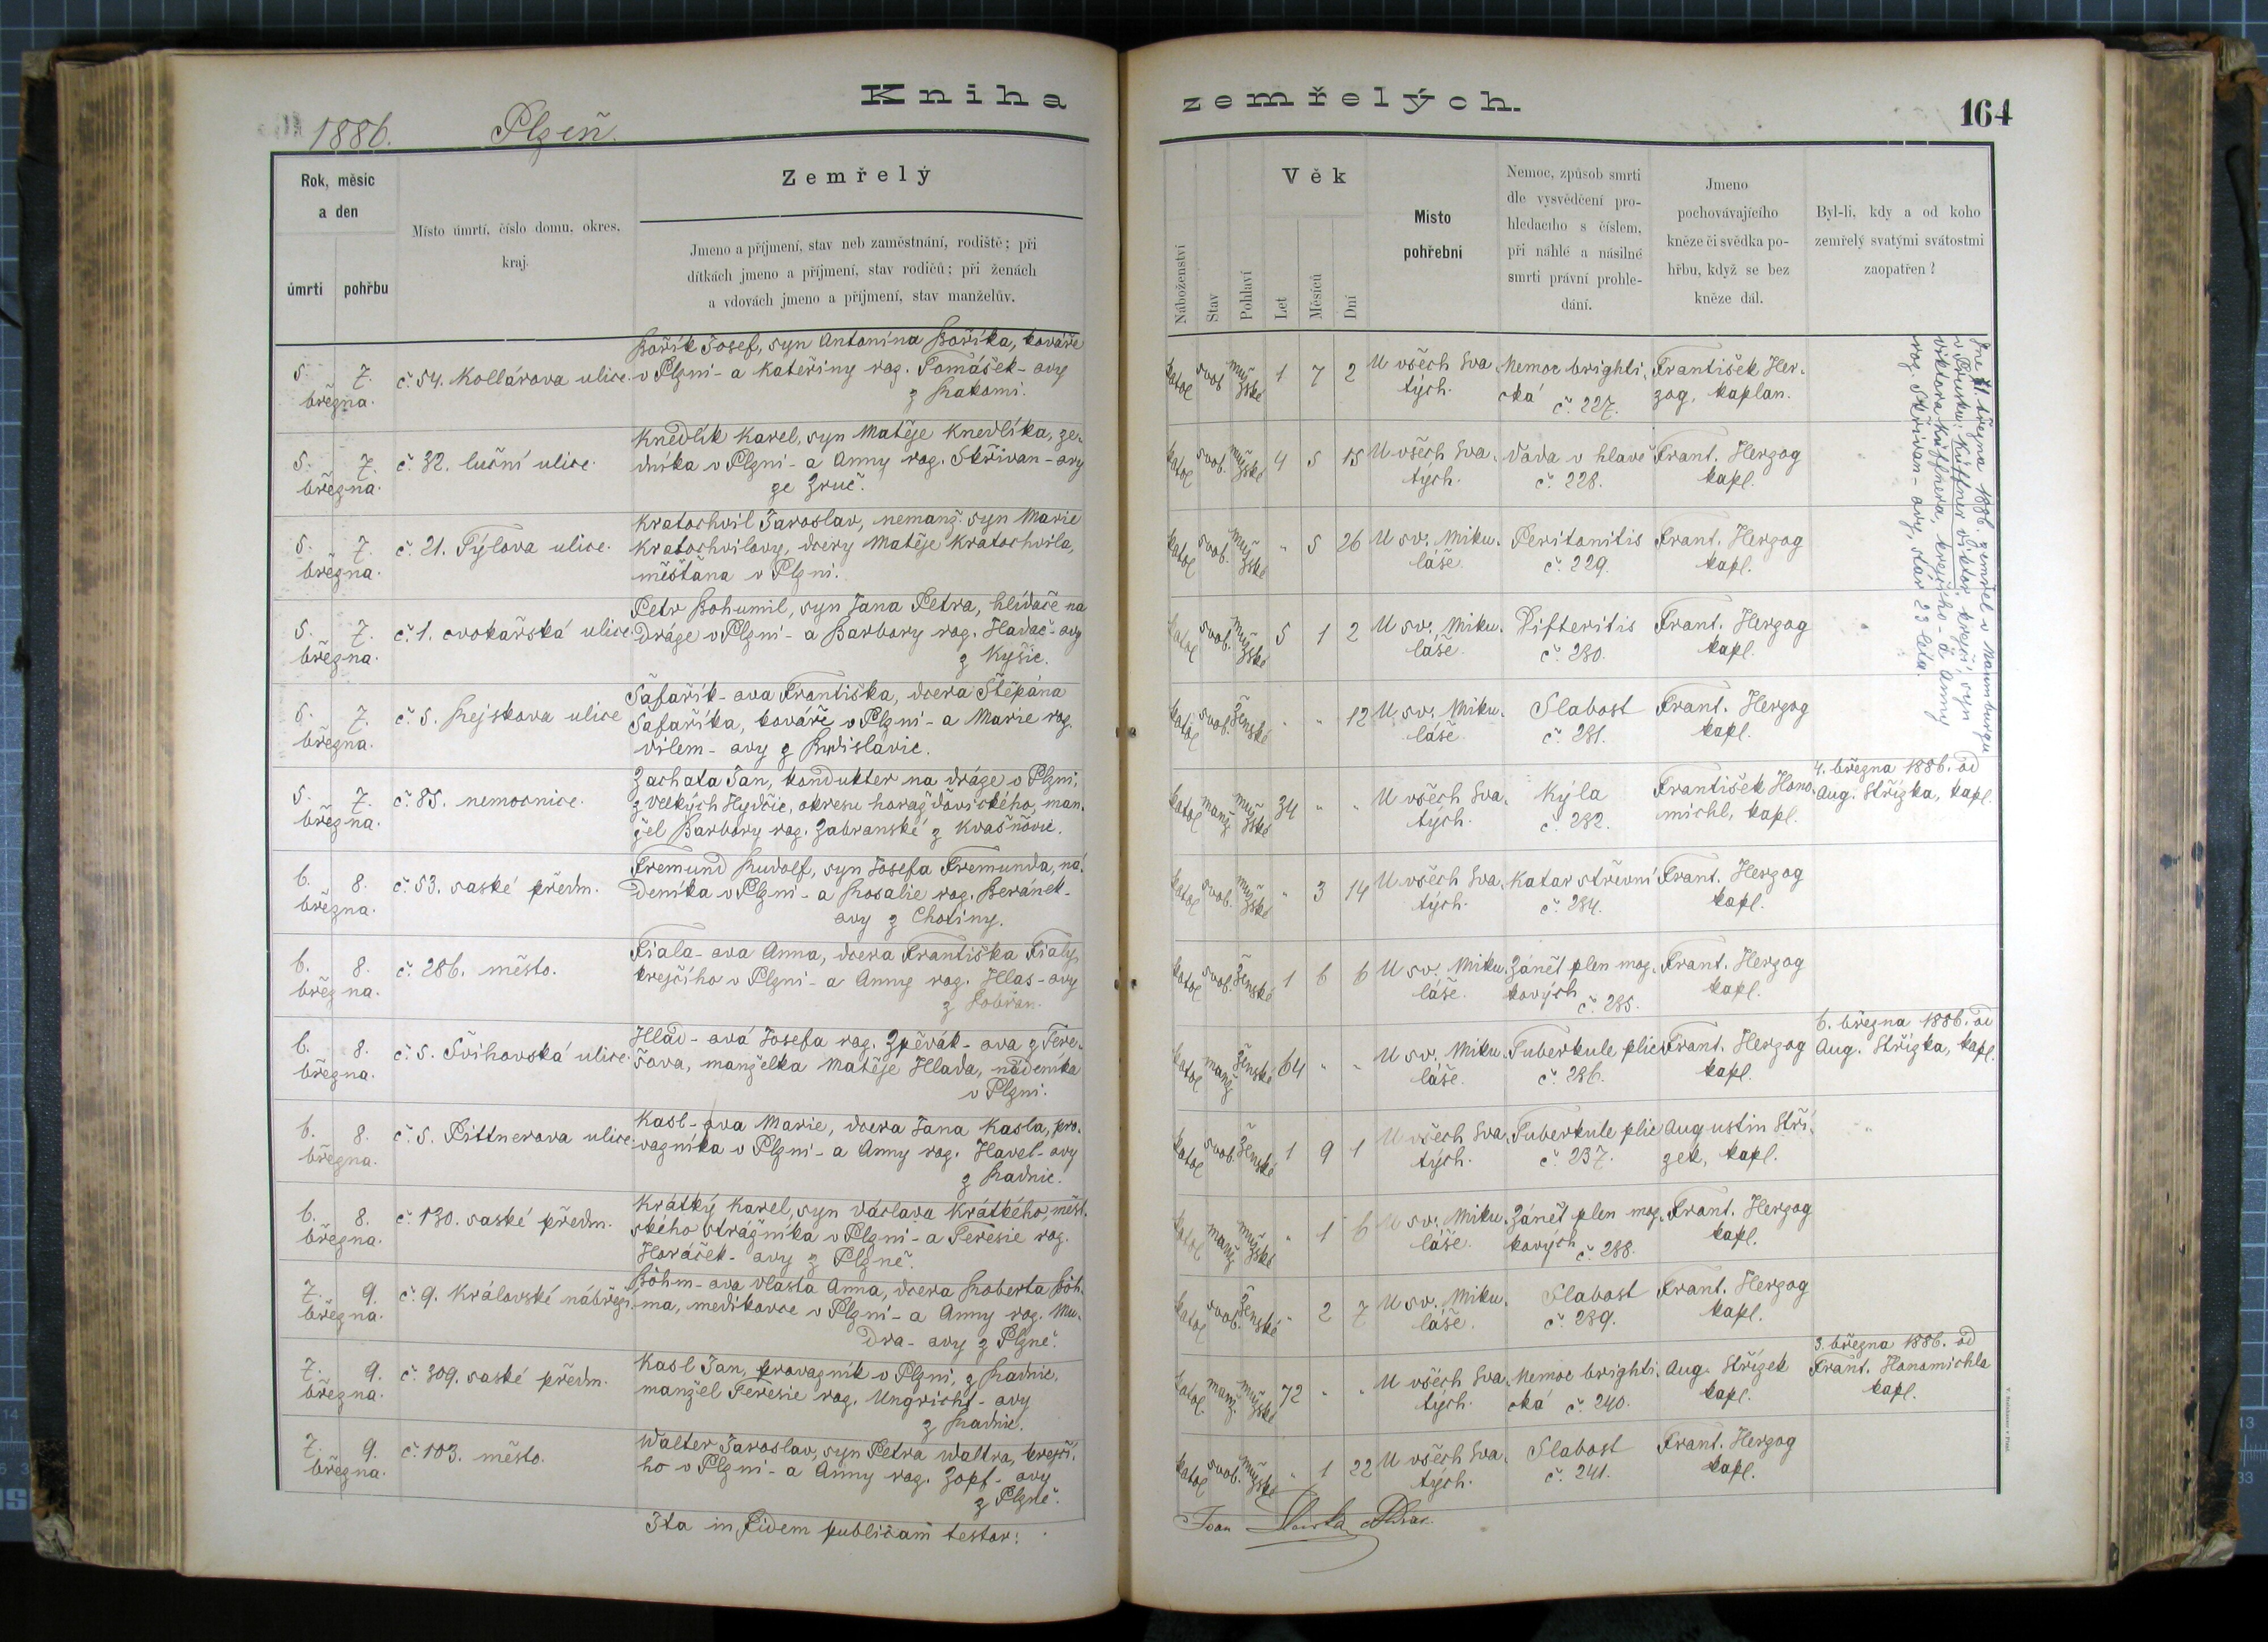 Kniha zemřelých.
1886. Plzeň.
164
Rok, měsíc a den
úmrtí
pohřbu
Místo úmrtí, číslo domu, okres, kraj.
Zemřelý
Jmeno a příjmení, stav neb zaměstnání, rodiště; při
dítkách jmeno a příjmení, stav rodičů; při ženách
a vdovách jmeno a příjmení, stav manželův.
Náboženství
Stav
Pohlaví
Věk
Let
Měsíců
Dní
Místo
pohřební
Nemoc, způsob smrti
dle vysvědčení pro-
hledacího s číslem,
při náhlé a násilné
smrti právní prohle-
dání.
Jmeno
pochovávajícího
kněze či svědka po-
hřbu, když se bez
kněze dál.
Byl-li, kdy a od koho
zemřelý svatými svátostmi
zaopatřen?
5. 7.
března.
č. 54. Kollárova ulice.
Bořík Josef, syn Antonína Boříka, kováře
v Plzni - a Kateřiny roz. Tomášek - ovy
z Rakomi.
katol svob mužské 1 7 2
U všech Sva-
tých.
Nemoc brighti-
cká
č. 227.
František Her-
zog, kaplan.
5. 7.
března.
č. 32. luční ulice.
Knedlík Karel, syn Matěje Knedlíka, ze-
dníka v Plzni - a Anny roz. Skřivan - ovy
ze Zruč.
katol svob. mužské 4 5 15
U všech Sva-
tých.
Voda v hlavě
č. 228.
Frant. Herzog
kapl.
5. 7.
března.
č. 21. Týlova ulice.
Kratochvil Jaroslav, nemanž. syn Marie
Kratochvilovy, dcery Matěje Kratochvila,
měšťana v Plzni.
katol svob. mužské " 5 26
U sv. Miku-
láše.
Peritonitis
č. 229.
Frant. Herzog
kapl.
5. 7.
března.
č. 1. cvokařská ulice.
Petr Bohumil, syn Jana Petra, hlídače na
dráze v Plzni - a Barbory roz. Hadač - ovy
z Kyšic.
katol svob. mužské 5 1 2
U sv. Miku-
láše.
Difteritis
č. 230.
Frant. Herzog
kapl.
5. 7.
března.
č. 5. Rejskova ulice
Šafařík - ova Františka, dcera Štěpána
Šafaříka, kováře v Plzni - a Marie roz.
Vilem - ovy z
katol svob. ženské " " 12
U sv. Miku-
láše.
Slabost
č. 231.
Frant. Herzog
kapl.
5. 7.
března.
č. 85. nemocnice.
Zachata Jan, kondukter na dráze v Plzni,
z Velkých Hydčic, okresu horažďovického, man-
žel Barbory roz. Zabranské z Kvašňovic.
katol manž mužské 34 " "
U všech Sva-
tých.
Kýla
č. 232.
František Hono-
michl, kapl.
4. března 1886. od
Aug. Střízka, kapl.
6. 8.
března.
č. 53. saské předm.
Fremund Rudolf, syn Josefa Fremunda, ná-
deníka v Plzni - a Rosalie roz. Beránek -
ovy z Chotiny.
katol svob. mužské " 3 14
U všech Sva-
tých.
Katar střevní
č. 234.
Frant. Herzog
kapl.
6. 8.
března.
č. 286. město.
Fiala - ova Anna, dcera Františka Fialy,
krejčího v Plzni - a Anny roz. Hlas - ovy
z Dobřan.
katol svob. ženské 1 6 6
U sv. Miku-
láše.
Zánět plen moz-
kových
č. 235.
Frant. Herzog
kapl.
6. 8.
března.
č. 5. Švihovská ulice.
Hlad - ová Josefa roz. Zpěvák - ova z Tere-
šova, manželka Matěje Hlada, nádeníka
v Plzni.
katol manž ženské 64 " "
U sv. Miku-
láše.
Tuberkule plic
č. 236.
Frant. Herzog
kapl.
6. března 1886. od
Aug. Střízka, kapl.
6. 8.
března.
č. 5. Pittnerova ulice.
Kasl - ova Marie, dcera Jana Kasla, pro-
vazníka v Plzni - a Anny roz. Havel - ovy
z Radnic.
katol svob. ženské 1 9 1
U všech Sva-
tých.
Tuberkule plic
č. 237.
Augustin Stří-
zek, kapl.
6. 8.
března.
č. 130. saské předm.
Krátký Karel, syn Václava Krátkého, měst-
ského strážníka v Plzni - a Teresie roz.
Horáček - ovy z Plzně.
katol manž mužské " 1 6
U sv. Miku-
láše.
Zánět plen moz-
kových
č. 238.
Frant. Herzog
kapl.
7. 9.
března.
č. 9. Královské nábřeží.
Böhm - ova Vlasta Anna, dcera Roberta Böh-
ma, medikovce v Plzni - a Anny roz. Mu-
dra - ovy z Plzně.
katol svob. ženské " 2 7
U sv. Miku-
láše.
Slabost
č. 239.
Frant. Herzog
kapl.
7. 9.
března.
č. 309. saské předm.
Kasl Jan, provazník v Plzni, z Radnic,
manžel Teresie roz. Ungricht - ovy
z Radnic.
katol. manž. mužské 72 " "
U všech Sva-
tých.
Nemoc brighti-
cká č. 240.
Aug. Střízek
kapl.
3. března 1886. od
Frant. Honomichla
kapl.
7. 9.
března.
č. 103. město.
Walter Jaroslav, syn Petra Waltra, krejčí-
ho v Plzni - a Anny roz. Zopf - ovy
z Plzně.
katol svob. mužské " 1 22
U všech Sva-
tých.
Slabost
č. 241.
Frant. Herzog
kapl.
března 1886. zemřel v Naumburgu
v Prusku: Küffner Viktor, krejčí, syn
Viktora Küffnera, krejčího - a Anny
roz. Skřivan - ovy, stár 23 léta.
Ita in Fidem publicam testor:
Joan